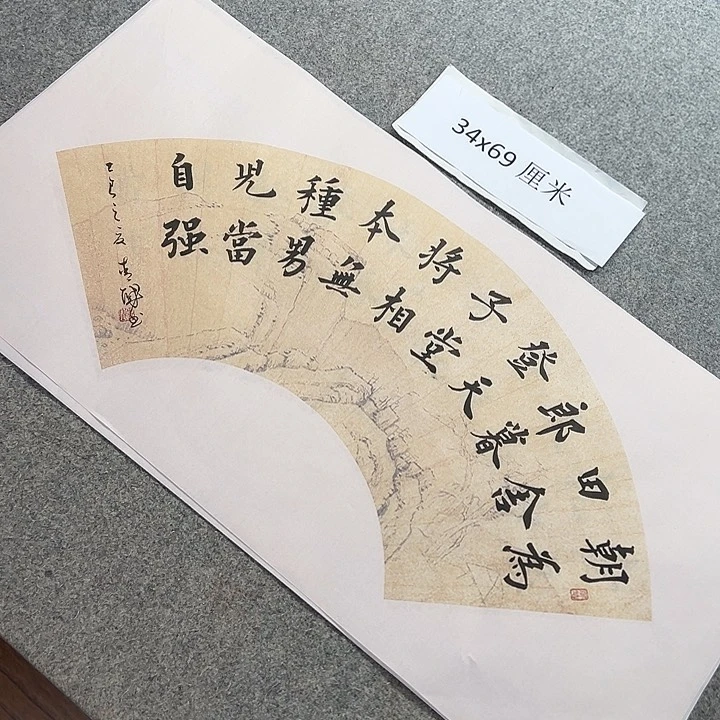 朝為
田舍
郎暮
登天
子堂
將相
本無
種男
兒當
自强
乙巳之夏
34x69 厘米